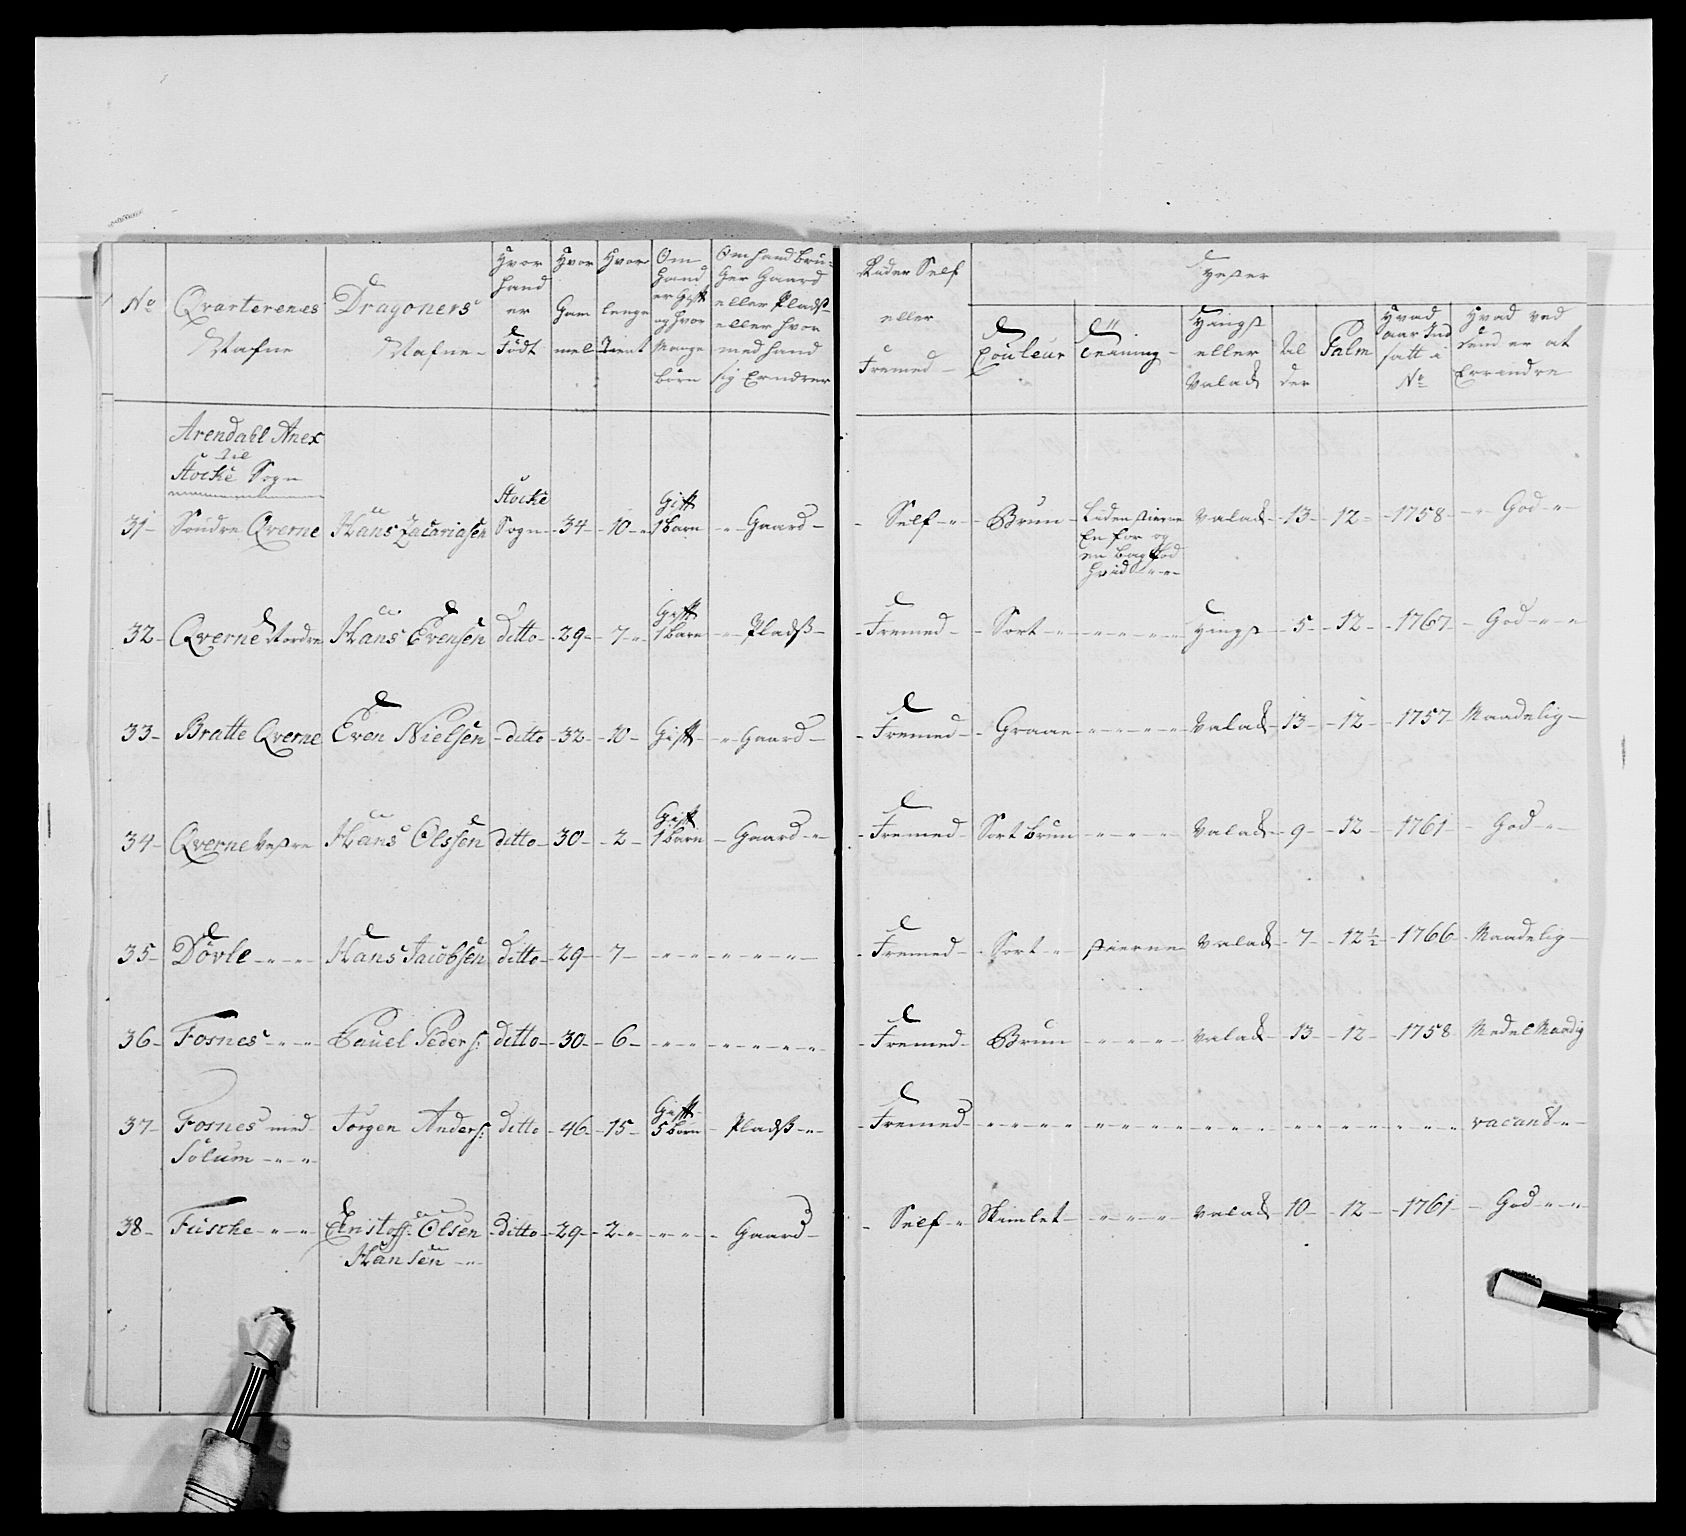 No
Qvarterenes
Nafne
Dragoners
Nafne
Hvor hand er Født
Hvor Gam mel
Hvor lenge Tient
Om Hand er Gift og hvor Mange børn
Om hand bru-
ger Gaard
eller Pladß
eller hvor
med hand
sig Erndrer
Rider Self
eller
Fremed
Hester
Couleur
Teigning
Hingst
eller
Valak
Al
der
Palm
Hvad
aar Ind
satt i
No
Hvad ved
dend er at
Errindre
Arendahl Anex
til
Stocke Sogn
31 Søndre Qverne Hans Zacariasen Stocke Sogn 34 10 Gift 1 Barn Gaard Self Brun Liden stierne En for og en bag fod hvid Valak 13 12 1758 God
32 Qverne Nordre Hans Evensen ditto 29 7 Gift 1 Barn Pladß Fremed Sort Hingst 5 12 1767 God
33 Bratte Qverne Even Nielsen ditto 32 10 Gift Gaard Fremed Graae Valak 13 12 1757 Maadelig
34 Qverne Vestre Hans Olssen ditto 30 2 Gift 1 Barn Gaard Fremed Sort brun Valak 9 12 1761 God
35 Døvle Hans Jacobsen ditto 29 7 Fremed Sort stierne Valak 7 12 1/2 1766 Maadelig
36 Fosnes Pauel Peders: ditto 30 6 Fremed Brun Valak 13 12 1758 Medel Maadig
37 Fosnes med Jørgen Anders: ditto 46 15 Gift 5 børn Pladß Fremed vacant
Solum
38 Fuscke Cristoff Olsen ditto 29 2 Gaard Self Skimlet Valak 10 12 1761 God
Hansen